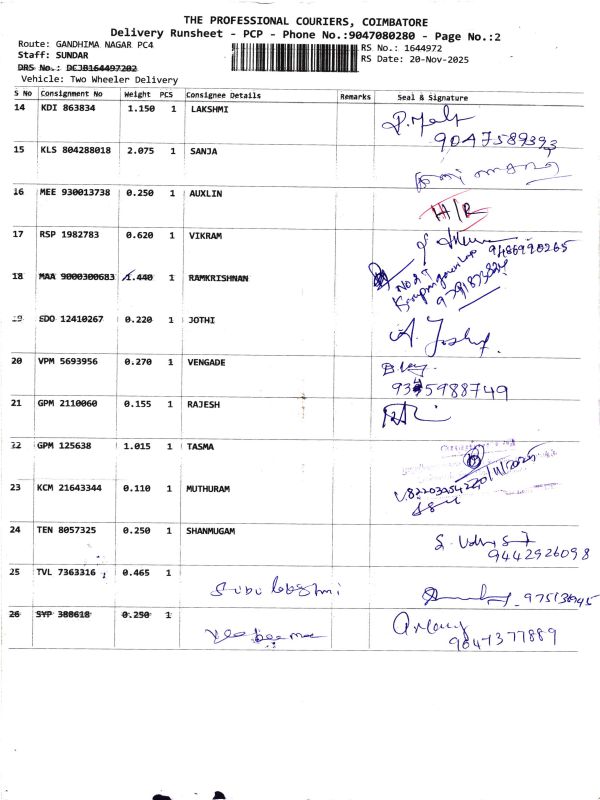 THE PROFESSIONAL COURIERS, COIMBATORE
Delivery Runsheet - PCP - Phone No.:9047080280 - Page No.:2
Route: GANDHIMA NAGAR PC4
RS No.: 1644972
Staff: SUNDAR
RS Date: 20-Nov-2025
DRS No.: DCJB164497202
Vehicle: Two Wheeler Delivery
S No Consignment No Weight PCS Consignee Details Remarks Seal & Signature
14 KDI 863834 1.150 1 LAKSHMI
9047589393
15 KLS 804288018 2.075 1 SANJA
16 MEE 930013738 0.250 1 AUXLIN
H/R
17 RSP 1982783 0.620 1 VIKRAM
9486990265
18 MAA 9000300683 1.440 1 RAMKRISHNAN
No 27
19 EDO 12410267 0.220 1 JOTHI
20 VPM 5693956 0.270 1 VENGADE
9345988749
21 GPM 2110060 0.155 1 RAJESH
22 GPM 125638 1.015 1 TASMA
20/11/2025
23 KCM 21643344 0.110 1 MUTHURAM
24 TEN 8057325 0.250 1 SHANMUGAM
9442926098
25 TVL 7363316 0.465 1
26 SYP 388618 0.250 1
9047377889